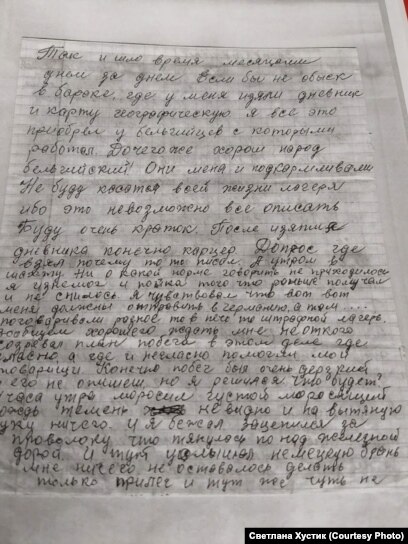 Так и шло время месяцами
днем за днем Если бы не обыск
в бараке, где у меня изяли дневник
и карту географическую я все это
приобрел у бельгийцев с которыми
работал. Дочегоже хорош народ
бельгийский Они меня и подкармливали
Не буду касатся всей жизни лагеря
ибо это невозможно все описать
Буду очень краток. После изятия
дневника конечно карцер Допрос где
взял почему то то писал. А утром в
шахту ни о какой норме говорить не приходилось
я изнемог и пойка того что раньше получал
и не спилось. Я чувствовал что вот вот
меня должны отправить в германию, а там....
поговаривали родное то в иле то штрафной лагерь.
хорошего ждать мне не откого
созревал план побега в этом деле где
гласно а где и негласно помогли мои
товарищи Конечно побег был очень дерзкий
его не опишеш, но я решился что будет?
часа утра моросил густой моросящий
дождь темень не видно и на вытяную
руку ничего. И я бежал зацепился за
проволоку что тянулась по над железной
дорой. И тут услышал немецкую брань
мне ничего не оставалось делать
только прилеч и тут пес чуть не
Светлана Хустик (Courtesy Photo)